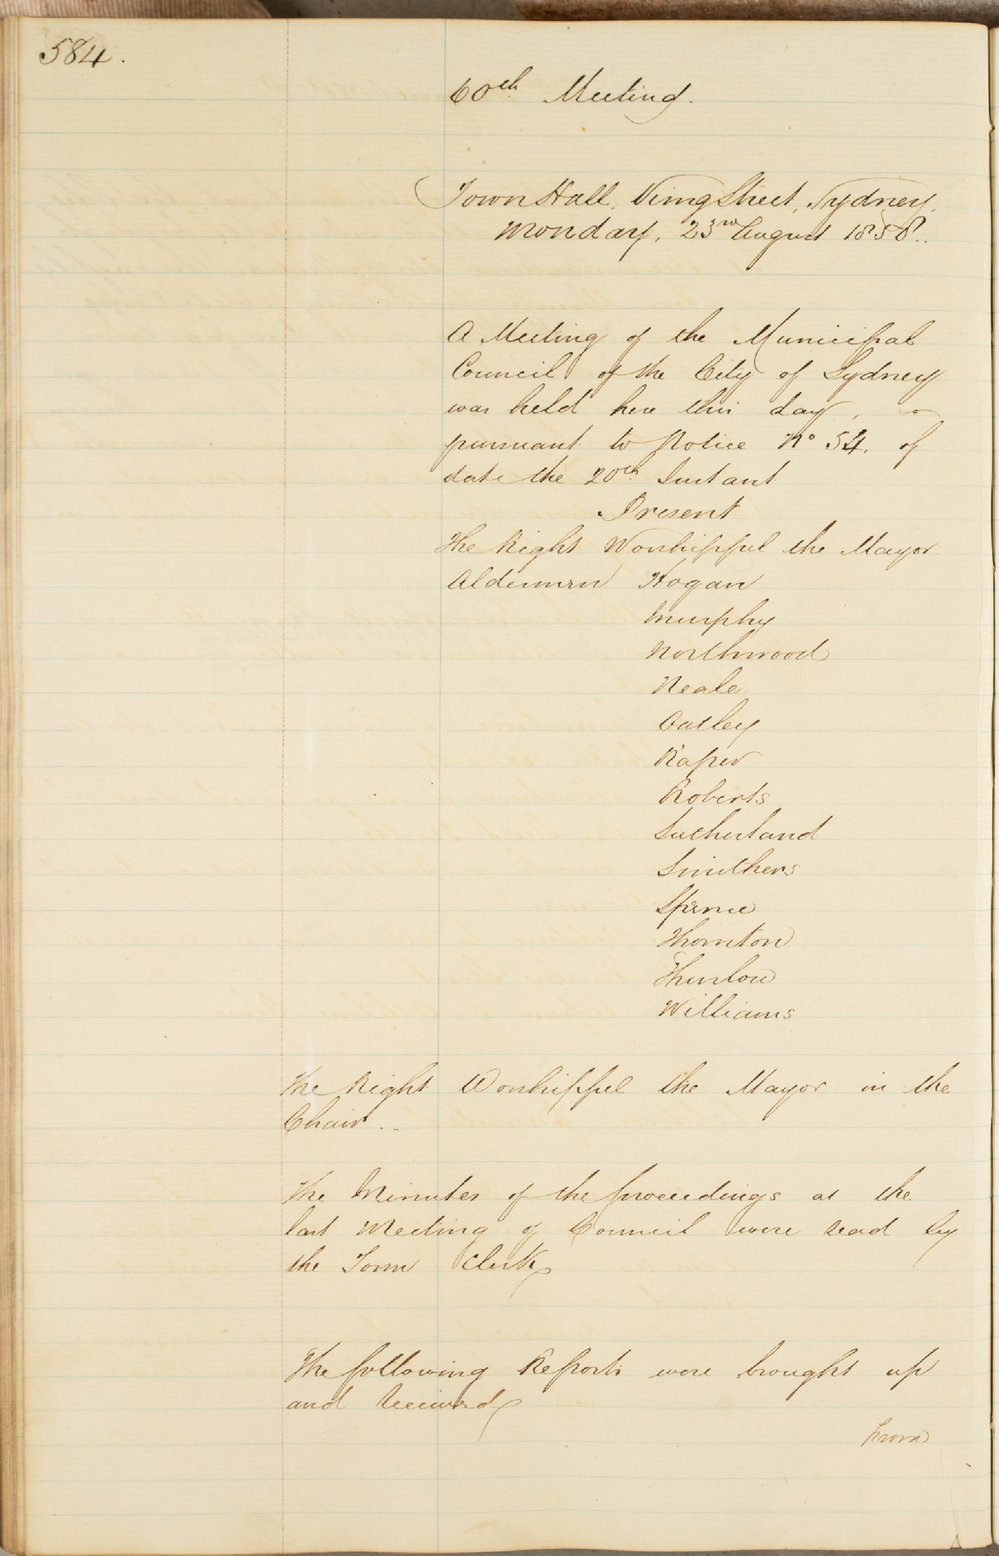 584.
60th Meeting.
Town Hall, King Street, Sydney,
Monday, 23rd August 1858.
A Meeting of the Municipal
Council of the City of Sydney
was held here this day,
pursuant to Notice No 54. of
date the 20th Instant
Present
The Right Worshipful the Mayor
Aldermen Hogan
Murphy
Northwood
Neale
Oatley
Raper
Roberts
Sutherland
Smithers
Spence
Thornton
Thurlow
Williams
The Right Worshipful the Mayor in the
Chair.
The Minutes of the proceedings at the
last Meeting of Council were read by
the Town Clerk
The following Reports were brought up
and received
From